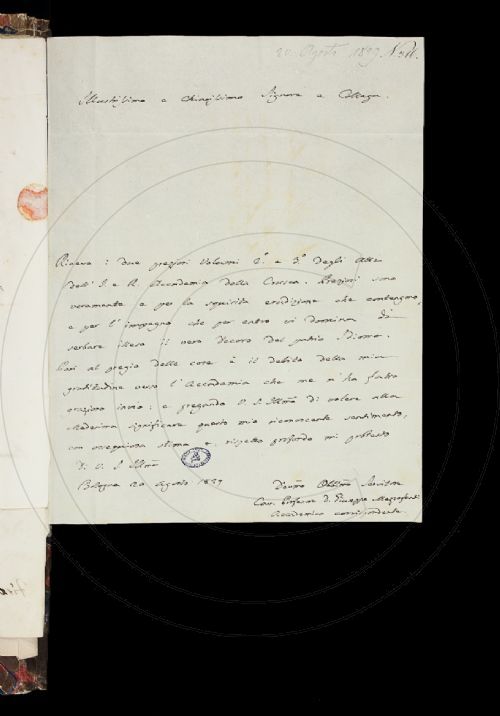 20. Agosto 1829. N.
Illustrissimo e Chiarissimo Signore e Collega.
Ricevo i due preziosi Volumi 2º e 3º degli Atti
dell' I. e R. Accademia della Crusca. Preziosi sono
veramente e per la squisita erudizione che contengono,
e per l'impegno che per entro vi domina di
serbare illeso il vero decoro del patrio Idioma.
Pari al pregio delle cose è il debito della mia
gratitudine verso l'Accademia che me n'ha fatto
grazioso invio; e pregando V. S. Illma di volere alla
Medesima significare questo mio riconoscente sentimento,
con ossequiosa stima e rispetto profondo mi protesto
di V. S. Illma
Bologna 20 Agosto 1829
Devmo Obblmo Servitore
Cav. Professore D. Giuseppe Mezzofanti
Accademico corrispondente.